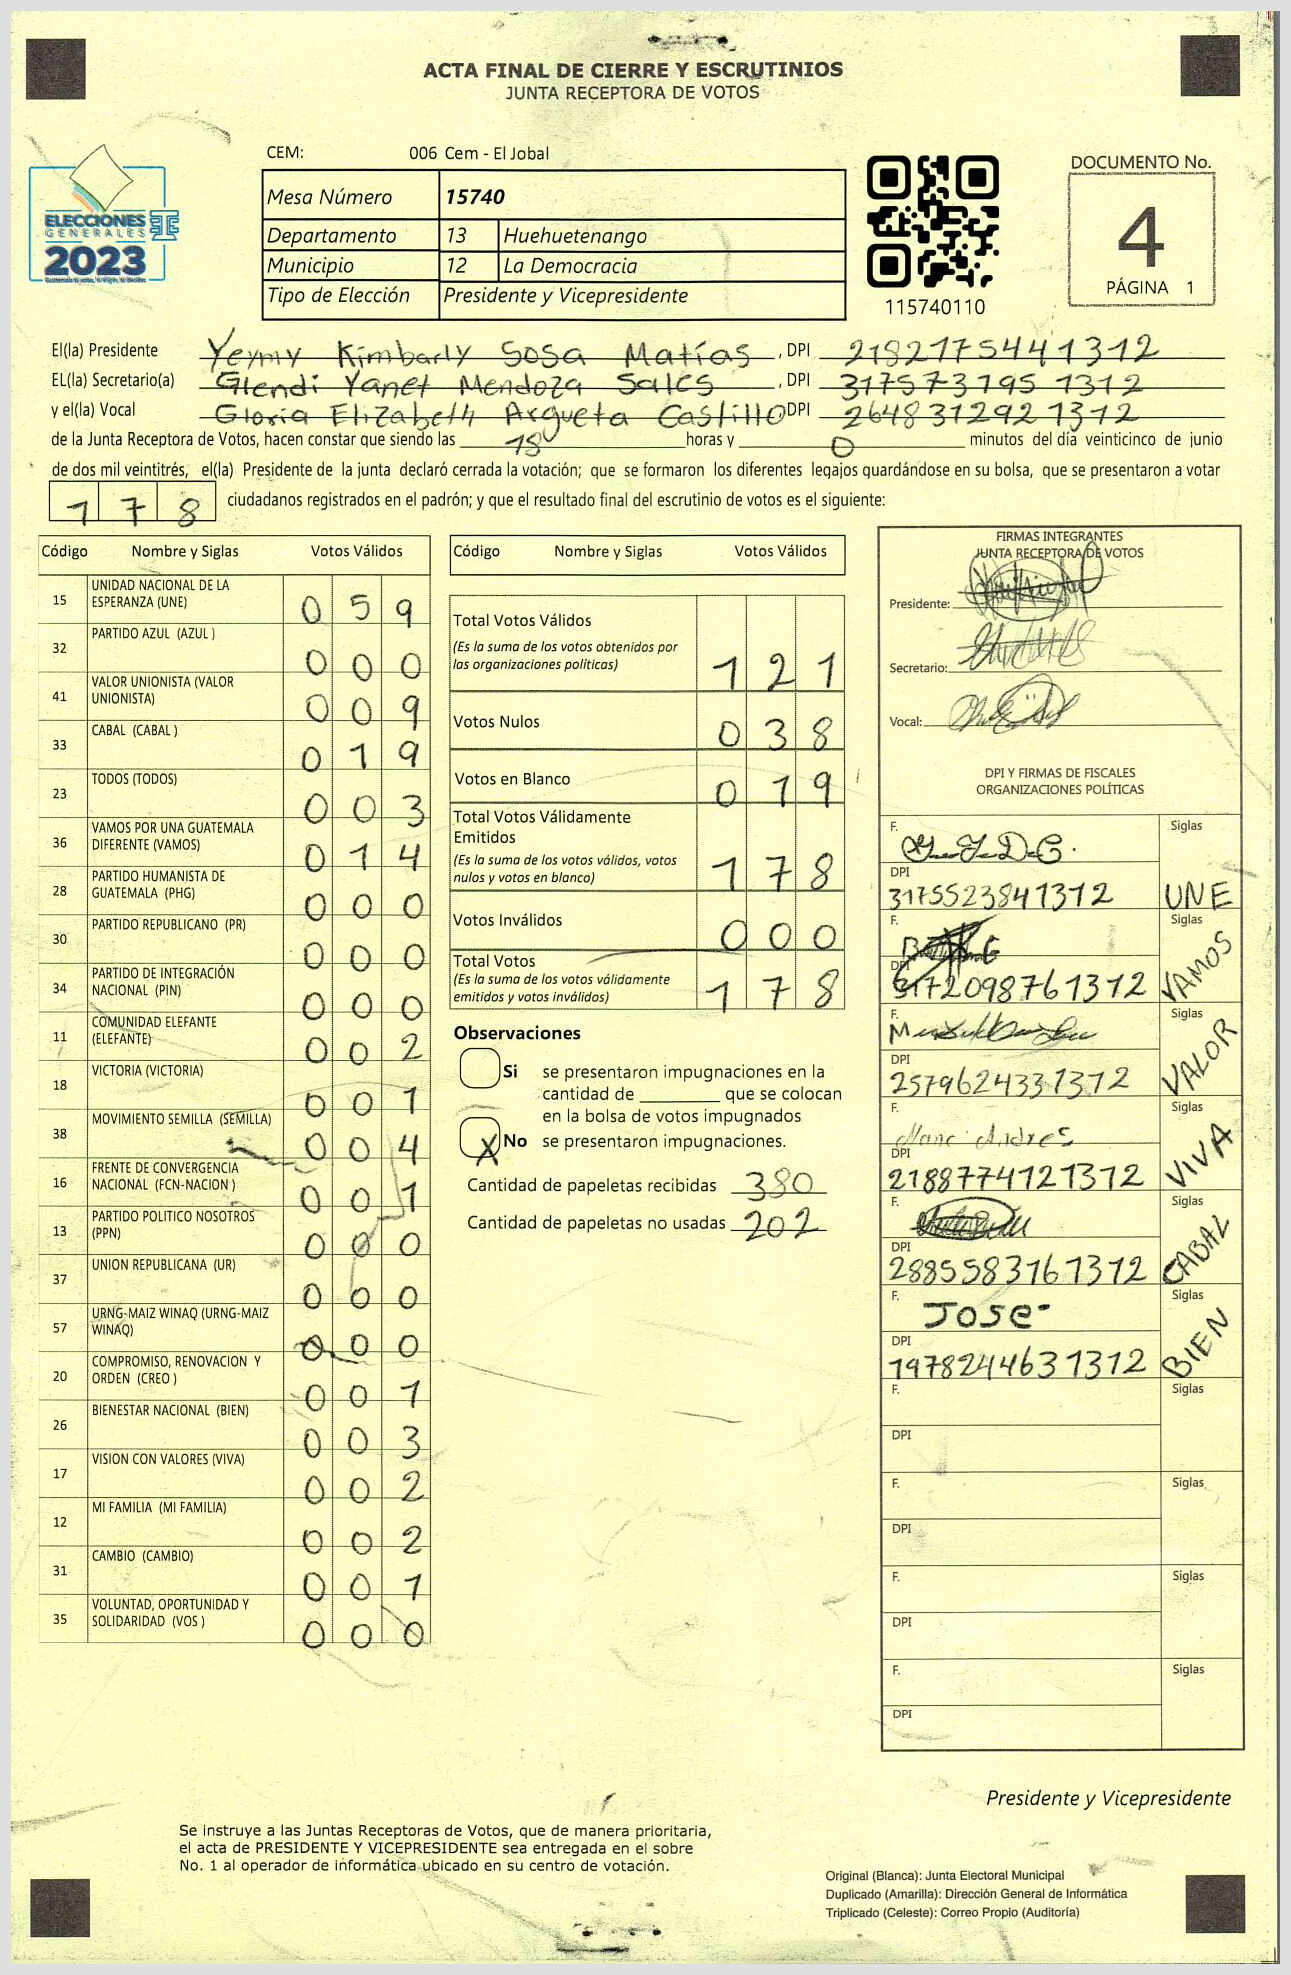 ACTA FINAL DE CIERRE Y ESCRUTINIOS
JUNTA RECEPTORA DE VOTOS
CEM: 006 Cem - El Jobal
Mesa Número 15740
Departamento 13 Huehuetenango
Municipio 12 La Democracia
Tipo de Elección Presidente y Vicepresidente
ELECCIONES
GENERALES
2023
115740110
DOCUMENTO No.
4
PÁGINA 1
El(la) Presidente Yeymy Kimbarly Sosa Matías, DPI 2182175441312
EL(la) Secretario(a) Glendi Yanet Mendoza Sales, DPI 3175731951312
y el(la) Vocal Gloria Elizabeth Argueta Castillo DPI 2648312921312
de la Junta Receptora de Votos, hacen constar que siendo las 18 horas y 0 minutos del día veinticinco de junio
de dos mil veintitrés, el(la) Presidente de la junta declaró cerrada la votación; que se formaron los diferentes legajos guardándose en su bolsa, que se presentaron a votar
178 ciudadanos registrados en el padrón; y que el resultado final del escrutinio de votos es el siguiente:
Código Nombre y Siglas Votos Válidos
15 UNIDAD NACIONAL DE LA ESPERANZA (UNE) 059
32 PARTIDO AZUL (AZUL ) 000
41 VALOR UNIONISTA (VALOR UNIONISTA) 009
33 CABAL (CABAL ) 019
23 TODOS (TODOS) 003
36 VAMOS POR UNA GUATEMALA DIFERENTE (VAMOS) 014
28 PARTIDO HUMANISTA DE GUATEMALA (PHG) 000
30 PARTIDO REPUBLICANO (PR) 000
34 PARTIDO DE INTEGRACIÓN NACIONAL (PIN) 000
11 COMUNIDAD ELEFANTE (ELEFANTE) 002
18 VICTORIA (VICTORIA) 001
38 MOVIMIENTO SEMILLA (SEMILLA) 004
16 FRENTE DE CONVERGENCIA NACIONAL (FCN-NACION ) 001
13 PARTIDO POLITICO NOSOTROS (PPN) 000
37 UNION REPUBLICANA (UR) 000
57 URNG-MAIZ WINAQ (URNG-MAIZ WINAQ) 000
20 COMPROMISO, RENOVACION Y ORDEN (CREO ) 001
26 BIENESTAR NACIONAL (BIEN) 003
17 VISION CON VALORES (VIVA) 002
12 MI FAMILIA (MI FAMILIA) 002
31 CAMBIO (CAMBIO) 001
35 VOLUNTAD, OPORTUNIDAD Y SOLIDARIDAD (VOS ) 000
Código Nombre y Siglas Votos Válidos
Total Votos Válidos
(Es la suma de los votos obtenidos por
las organizaciones politicas) 121
Votos Nulos 038
Votos en Blanco 019
Total Votos Válidamente
Emitidos
(Es la suma de los votos válidos, votos
nulos y votos en blanco) 178
Votos Inválidos 000
Total Votos
(Es la suma de los votos válidamente
emitidos y votos inválidos) 178
Observaciones
Si se presentaron impugnaciones en la
cantidad de ________ que se colocan
en la bolsa de votos impugnados
X No se presentaron impugnaciones.
Cantidad de papeletas recibidas 380
Cantidad de papeletas no usadas 202
FIRMAS INTEGRANTES
JUNTA RECEPTORA DE VOTOS
Presidente:
Secretario:
Vocal:
DPI Y FIRMAS DE FISCALES
ORGANIZACIONES POLÍTICAS
F. Siglas
DPI
3175523841312 UNE
F. Siglas
DPI
3172098761312 VAMOS
F. Siglas
DPI
2579624331312 VALOR
F. Andres Siglas
DPI
2188774121312 VIVA
F. Siglas
DPI
2885583161312 CABAL
F. Jose Siglas
DPI
1978244631312 BIEN
F. Siglas
DPI
F. Siglas
DPI
F. Siglas
DPI
F. Siglas
DPI
Presidente y Vicepresidente
Se instruye a las Juntas Receptoras de Votos, que de manera prioritaria,
el acta de PRESIDENTE Y VICEPRESIDENTE sea entregada en el sobre
No. 1 al operador de informática ubicado en su centro de votación.
Original (Blanca): Junta Electoral Municipal
Duplicado (Amarilla): Dirección General de Informática
Triplicado (Celeste): Correo Propio (Auditoría)